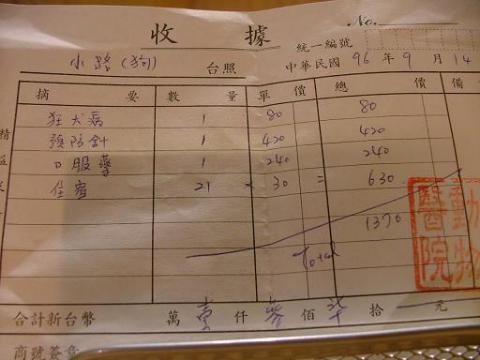 收據
No.
統一編號
小路(狗) 台照 中華民國 96 年 9 月 14
摘要 數量 單價 總價 備
狂犬病 1 80 80
預防針 1 420 420
口服藥 1 240 240
住宿 21 × 30 = 630
1370
Total
動物醫院
合計新台幣 萬 壹 仟 參 佰 柒 拾 元
商號簽章